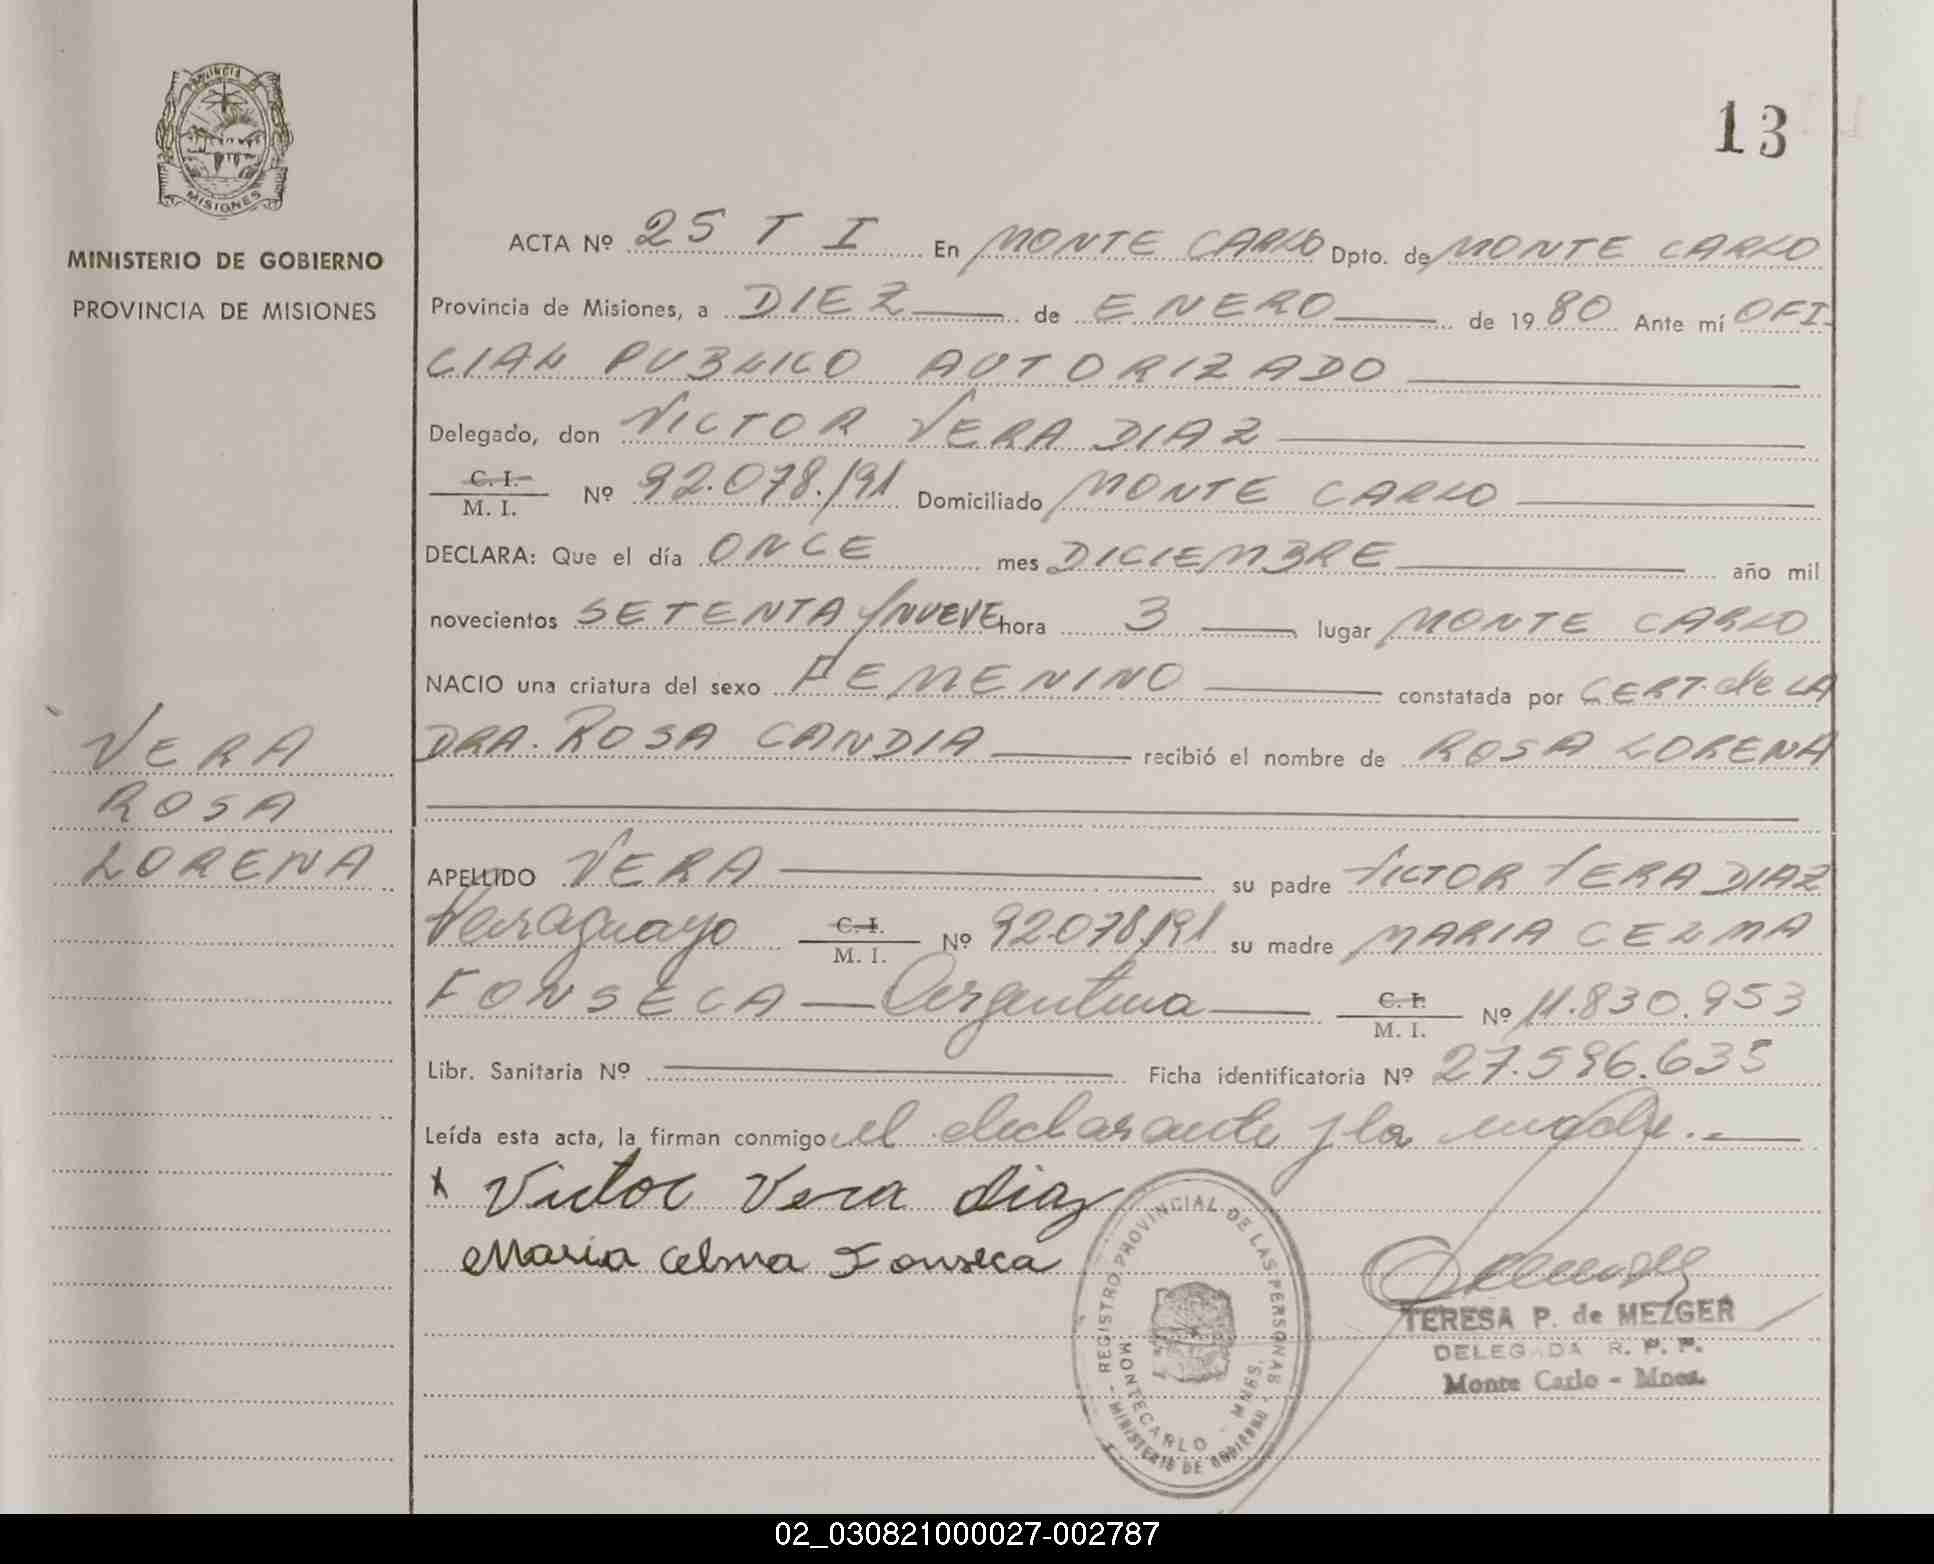 13
PROVINCIA
MISIONES
MINISTERIO DE GOBIERNO
PROVINCIA DE MISIONES
VERA
ROSA
LORENA
ACTA Nº 25 T I En MONTE CARLO Dpto. de MONTE CARLO
Provincia de Misiones, a DIEZ de ENERO de 1980 Ante mí OFI-
CIAL PUBLICO AUTORIZADO
Delegado, don VICTOR VERA DIAZ
C. I. M. I. Nº 92.078.191 Domiciliado MONTE CARLO
DECLARA: Que el día ONCE mes DICIEMBRE año mil
novecientos SETENTA y NUEVE hora 3 lugar MONTE CARLO
NACIO una criatura del sexo FEMENINO constatada por CERT. de LA
DRA. ROSA CANDIA recibió el nombre de ROSA LORENA
APELLIDO VERA su padre VICTOR VERA DIAZ
Paraguayo C. I. M. I. Nº 92.078.191 su madre MARIA CELMA
FONSECA — Argentina C. I. M. I. Nº 11.830.953
Libr. Sanitaria Nº Ficha identificatoria Nº 27.596.635
Leída esta acta, la firman conmigo el declarante y la madre.
x Victor Vera diaz
Maria Celma Fonseca
REGISTRO PROVINCIAL DE LAS PERSONAS
MONTECARLO - MNES.
MINISTERIO DE GOBIERNO
TERESA P. de MEZGER
DELEGADA R. P. P.
Monte Carlo - Mnes.
02_030821000027-002787